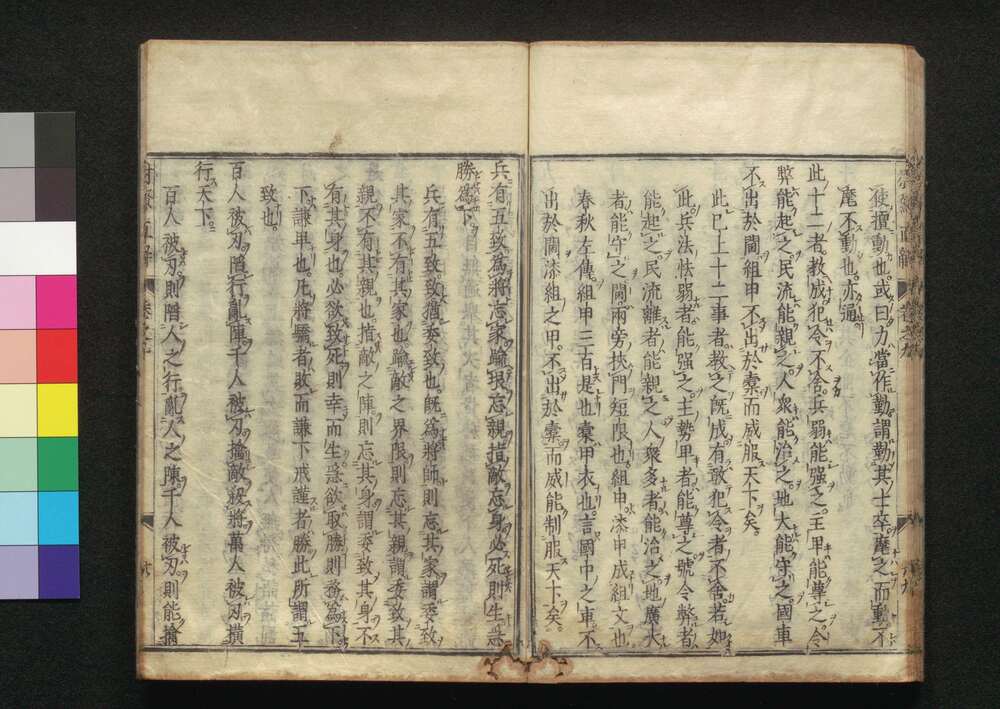 使擅動也或曰力當作勤謂勤其士卒麾之而動不
麾不動也亦通
此十二者教成犯令不舍兵弱能強之主卑能尊之令
弊能起之民流能親之人衆能治之地大能守之國車
不出於閫組甲不出於櫜而威服天下矣
此已上十二事者教之旣成有敢犯令者不舍若如
此兵法怯弱者能强之主勢卑者能尊之號令弊者
能起之民流離者能親之人衆多者能治之地廣大
者能守之閫兩旁挾門短限也組甲漆甲成組文也
春秋左傳組甲三百是也櫜甲衣也言國中之車不
出於閫漆組之甲不出於櫜而威能制服天下矣
兵有五致爲將忘家踰垠忘親指敵忘身必死則生急
勝爲下
兵有五致致猶委致也旣爲將師則忘其家謂委致
其家不有其家也踰敵之界限則忘其親謂委致其
親不有其親也指敵之陳則忘其身謂委致其身不
有其身也必欲致死則幸而生急欲取勝則務爲下
下謙卑也凡將驕者敗而謙下戒謹者勝此所謂五
致也
百人被刃陷行亂陳千人被刃擒敵殺將萬人被刃橫
行天下
百人被刃則陷人之行亂人之陳千人被刃則能擒